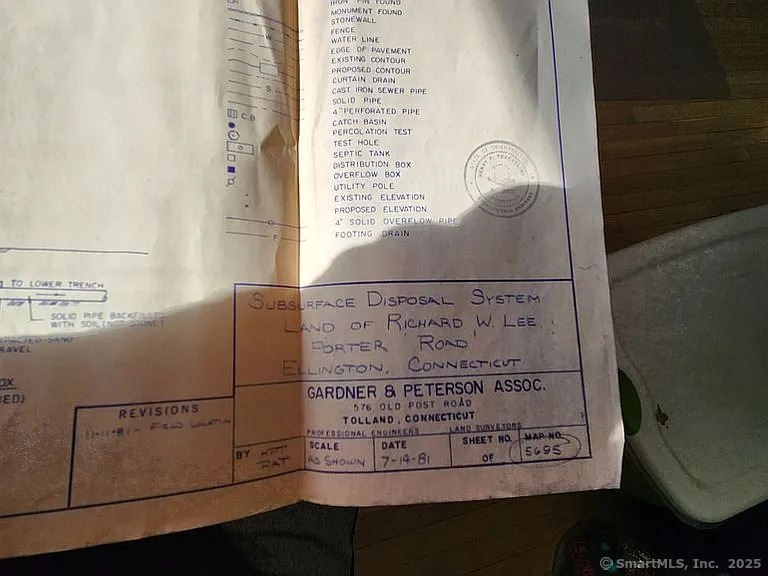 IRON PIN FOUND
MONUMENT FOUND
STONEWALL
FENCE
WATER LINE
EDGE OF PAVEMENT
EXISTING CONTOUR
PROPOSED CONTOUR
CURTAIN DRAIN
CAST IRON SEWER PIPE
SOLID PIPE
4" PERFORATED PIPE
C.B. CATCH BASIN
PERCOLATION TEST
TEST HOLE
SEPTIC TANK
DISTRIBUTION BOX
OVERFLOW BOX
UTILITY POLE
EXISTING ELEVATION
PROPOSED ELEVATION
4" SOLID OVERFLOW PIPE
F FOOTING DRAIN
TO LOWER TRENCH
SOLID PIPE BACKFILLED
WITH SOIL (NOT STONE)
SAND
SUBSURFACE DISPOSAL SYSTEM
LAND OF RICHARD W. LEE
PORTER ROAD
ELLINGTON, CONNECTICUT
GARDNER & PETERSON ASSOC.
576 OLD POST ROAD
TOLLAND, CONNECTICUT
PROFESSIONAL ENGINEERS LAND SURVEYORS
REVISIONS
11-11-81 - FIELD LOCATION
BY
SCALE
AS SHOWN
DATE
7-14-81
SHEET NO.
OF
MAP NO.
5695
© SmartMLS, Inc. 2025